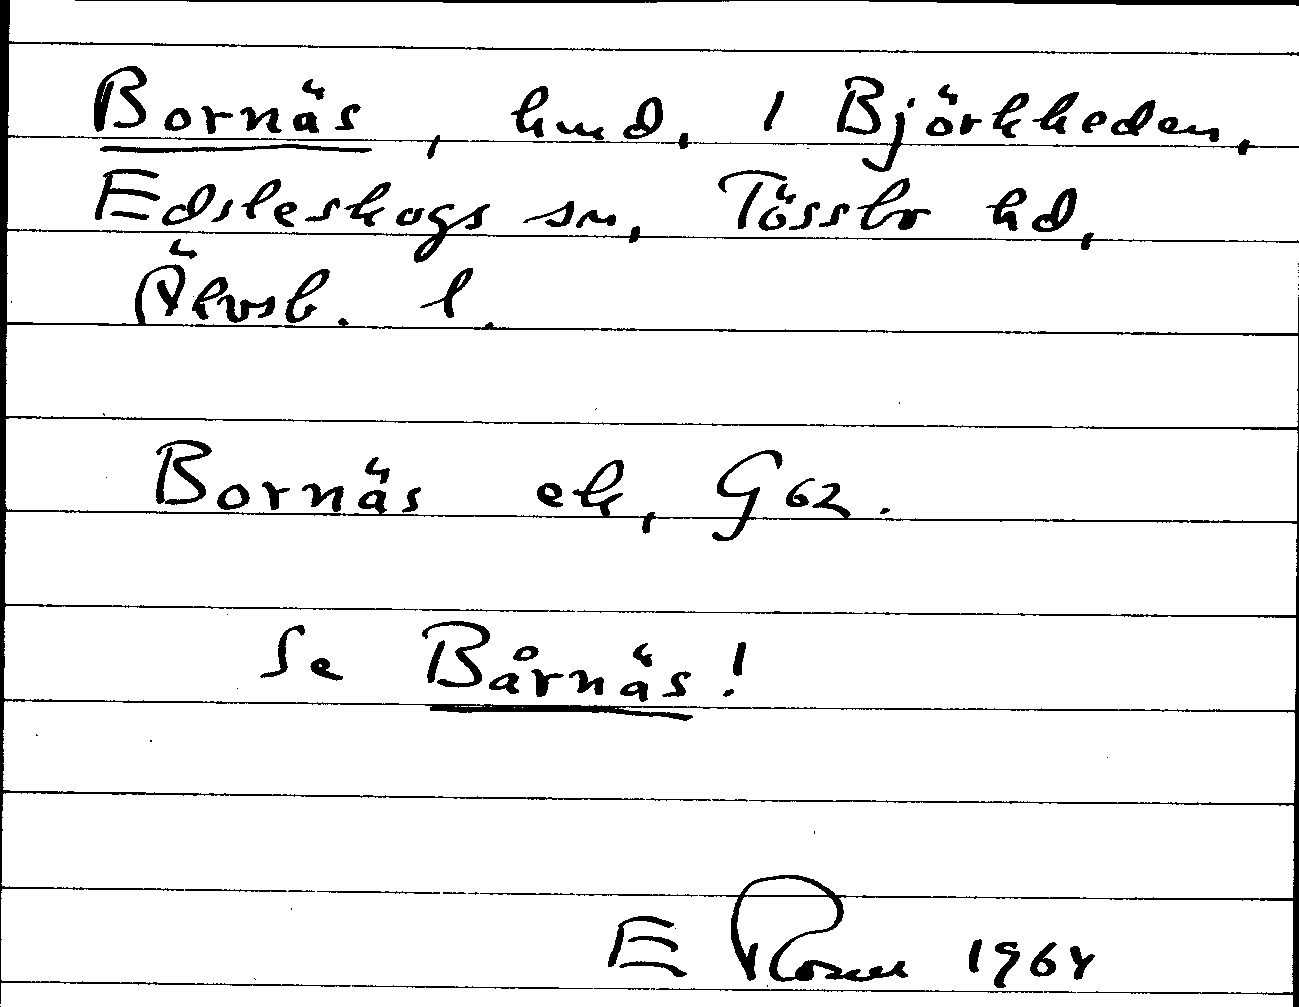 Bornäs, hmd, 1 Björkheden,
Edsleskogs sn, Tössbo hd,
Älvsb. l.
Bornäs ek, G62.
Se Bårnäs!
E 1964